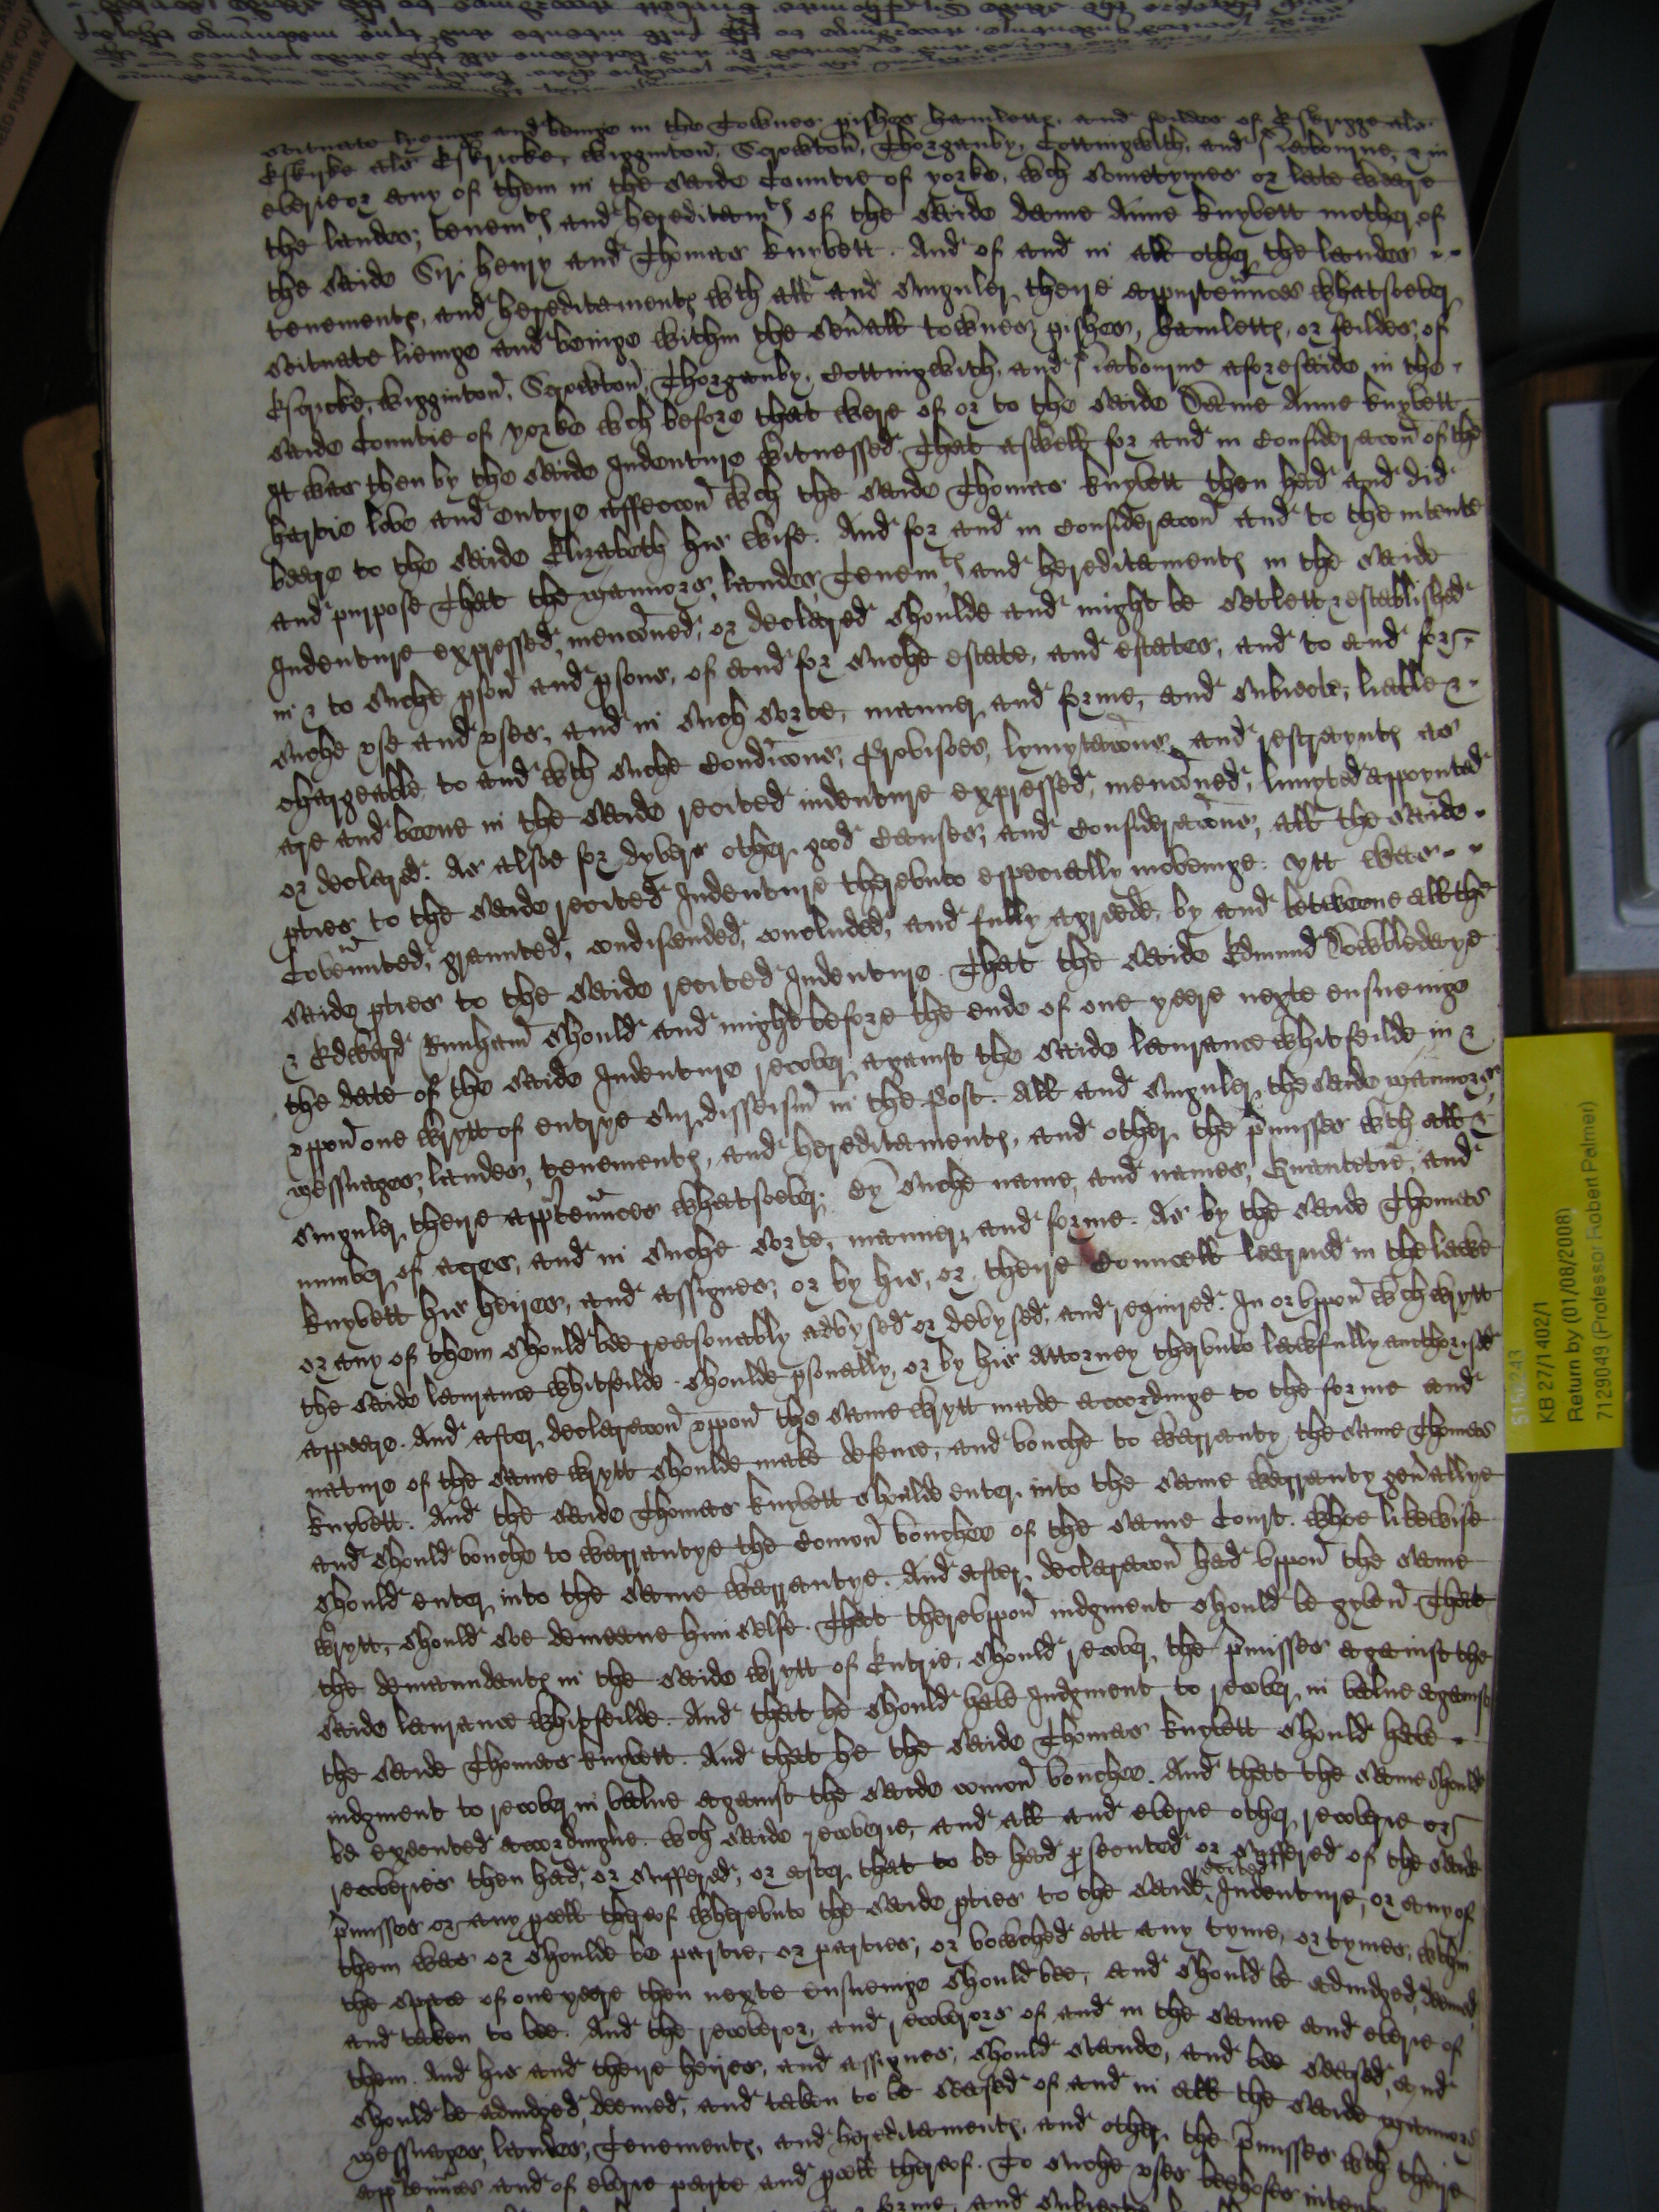 scituate lyenge and beinge in the Townes pishes hamletts, and feildes of Eskrigge als
Eskrike als Eskricke, wigginton, Scrowton, Thorganby, Cottingwith, and in
everie or any of them in the saide Countie of yorke, wch sometymes or late weare
the landes, tenemts, and hereditamts of the saide dame Anne knyvett mother of
the saide Sir henry and Thomas knyvett. And of and in all other the landes
tenements, and hereditaments wth all and singuler theire appurtennces whatsoever
scituate lieinge and beinge within the sevall townes pishes, hamletts, or feildes, of
Escricke, wigginton, Scrowton, Thorganby, Cottingwith, and aforesaide in the
saide Countie of yorke wch before that were of or to the saide Dame Anne knyvett
It was then by the saide Indenture witnessed That aswell for and in Consideracon of the
hartie love and entyre affeccon wch the saide Thomas knyvett then had and did
beare to the saide Elizabeth his wife. And for and in Consideracon and to the intente
and purpose That the mannors, landes, Tenemts, and hereditaments in the saide
Indenture expressed, menconed, or declared shoulde and might be setlett & established
in & to suche pson and psons, of and for suche estate, and estates, and to and for
suche use and uses, and in such sorte, manner and forme, and subiecte, liable &
chargeable to and wth suche Condicons, Provisoes, lymytacons, and restraynts as
are and beene in the saide recited indenture expressed, menconed, lymyted appoynted
or declared. As alsoe for dyvers other good Causes, and Consideracons, all the saide
pties to the saide recited Indenture therevnto especially movinge. ytt was
Covennted, graunted, condiscended, concluded, and fully agreede, by and betweene all the
saide pties to the saide recited Indenture. That the saide Edmund Dowbledaye
& Edward Bunham should and might before the ende of one yeere nexte ensueinge
the date of the saide Indenture recover against the saide laurance whitfeilde in &
vppon one wrytt of entrye sur disseisin in the Post. All and singuler the saide mannors,
messuages, landes, tenements, and hereditaments, and other the pmisses wth all &
singuler theire appurtennces whatsoever. By suche name, and names, Quantetie, and
number of acres, and in suche sorte, manner and forme. As by the saide Thomas
knyvett his heires, and assignes, or by his, or theire Councell learned in the lawe
or any of them should bee reasonably advysed or devysed, and required. In or vppon wch wrytt
the saide laurance whitfeilde shoulde psonally, or by his Attorney thervnto lawfully aucthorised
appeare. And after declaracon vppon the same wrytt made accordinge to the forme and
nature of the same wrytt shoulde make defence, and vouche to warranty the same Thomas
knyvett. And the saide Thomas knyvett shoulde enter into the same warranty genallye
and should vouche to warrantye the Comon vouchee of the same Court. whoe likewise
should enter into the same warrantye. And after declaracon had vppon the same
wrytt, should soe demeane him selfe. That therevppon iudgment should be gyven That
the demaundants in the saide wrytt of Entrie, should recover the pmisses against the
saide laurance whitfeilde. And that he should have Iudgment to recover in value against
the saide Thomas knyvett. And that he the saide Thomas knyvett should have
iudgment to recover in value against the saide comon vouchee. And that the same should
be executed accordinglie. wch saide recoverie, and all and everie other recoverie or
recoveries then had, or suffered, or after that to be had prosecuted or suffered of the saide
pmisses or any pcell thereof wherevnto the saide pties to the saide recited Indenture, or any of
them was or shoulde be partie, or parties, or vowched att any tyme, or tymes, wthin
the space of one yeere then nexte ensueinge should bee, and should be adiudged, deemed,
and taken to bee. And the recoveror, and recoverors of and in the same and everie of
them. And his and theire heires, and assignes, should stande, and bee seased, and
should be adiudged, deemed, and taken to be seased of and in all the saide mannors
messuages, landes, Tenements, and hereditaments, and other the pmisses wth theire
appurtennces and of everie parte and pcell thereof. To suche uses behofes intents
KB 27/1402/1
Return by (01/08/2008)
7129049 (Professor Robert Palmer)